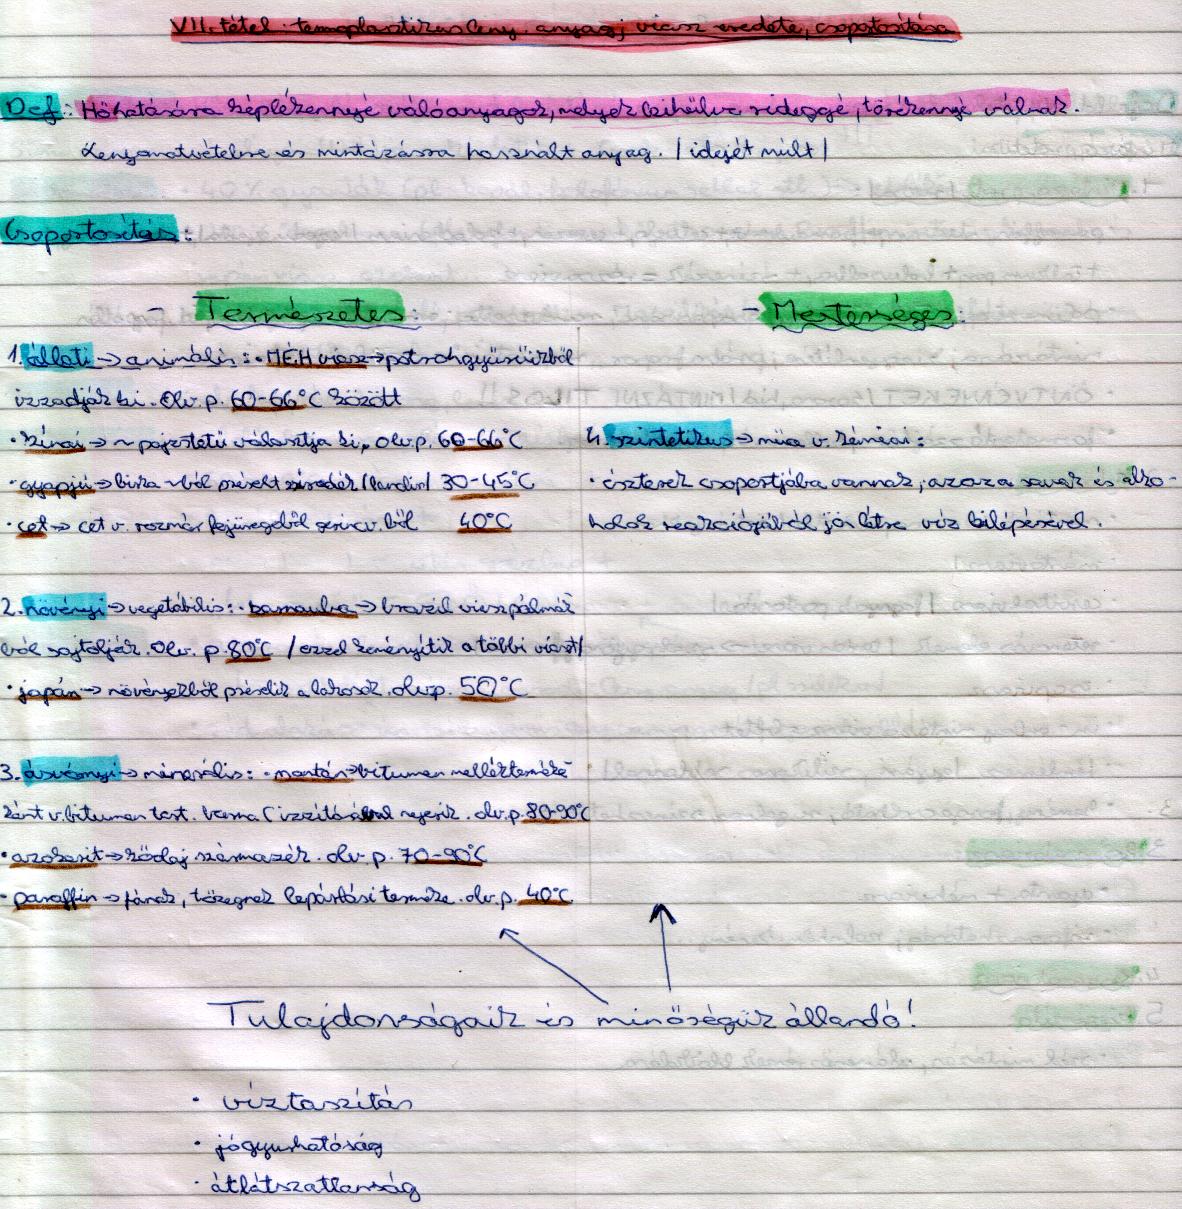 VII. tétel termoplasztikus leny. anyag; viasz eredete, csoportosítása
Def: Hőhatására képlékennyé válóanyagok, melyek kihűlve rideggé, törékennyé válnak.
Lenyomatvételre és mintázásra használt anyag. /idejét múlt/
Csoportosítás:
- Természetes:
- Mesterséges:
1. állati → animális: • MÉH viasz → potrohgyűrűiből
izzadják ki. Olv. p. 60-66°C között
• kínai → ~ pajzstetű választja ki, olv.p. 60-66°C
• gyapjú → birka ~ból préselt /lanolin/ 30-45°C
• cet → cet v. rozmár fejüregéből gerincv. ből 40°C
4. szintetikus → műa v. kémiai:
• észterek csoportjába vannak, azaz a savak és alko-
holok reakciójából jön létre víz kilépésével.
2. növényi → vegetábilis: • karnauba → brazil viaszpálmák
ból sajtolják. Olv. p. 80°C /ezzel keményítik a többi viaszt/
• japán → növényekből préselik a lakosok. olv.p. 50°C
3. ásványi → minerális: • montán → bitumen mellékterméke
ként v. bitumen tart. barna C izzításával nyerik. olv.p. 80-90°C
• azokerit → kőolaj származék. olv. p. 70-90°C
• paraffin → fának, tőzegnek lepárlási terméke. olv.p. 40°C
Tulajdonságaik és minőségük állandó!
• víztaszítás
• jógyurhatóság
• átlátszatlanság